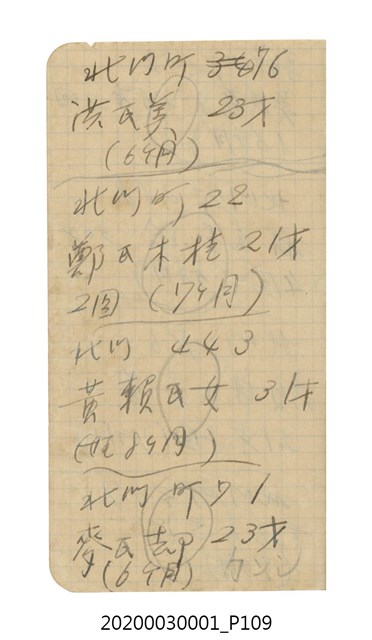 北門町 76
洪氏美 23才
(6ケ月)
北門町 22
鄭氏木桂 21才
2回 (7ケ月)
北門 443
黃賴氏女 31才
(妊8ケ月)
北門町 71
麥氏 23才
(6ケ月)
20200030001_P109